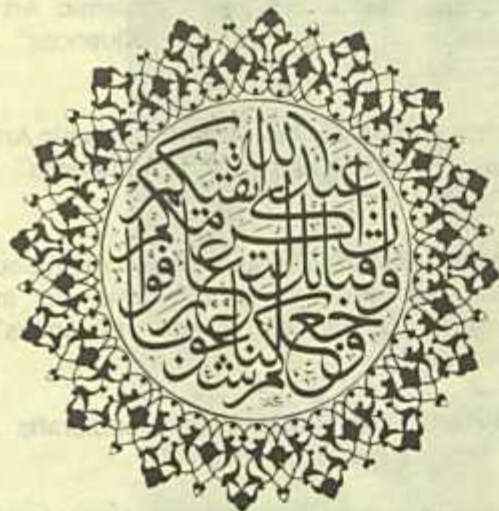 وجعلناكم شعوبا
وقبائل لتعارفوا
إن أكرمكم
عند الله أتقاكم